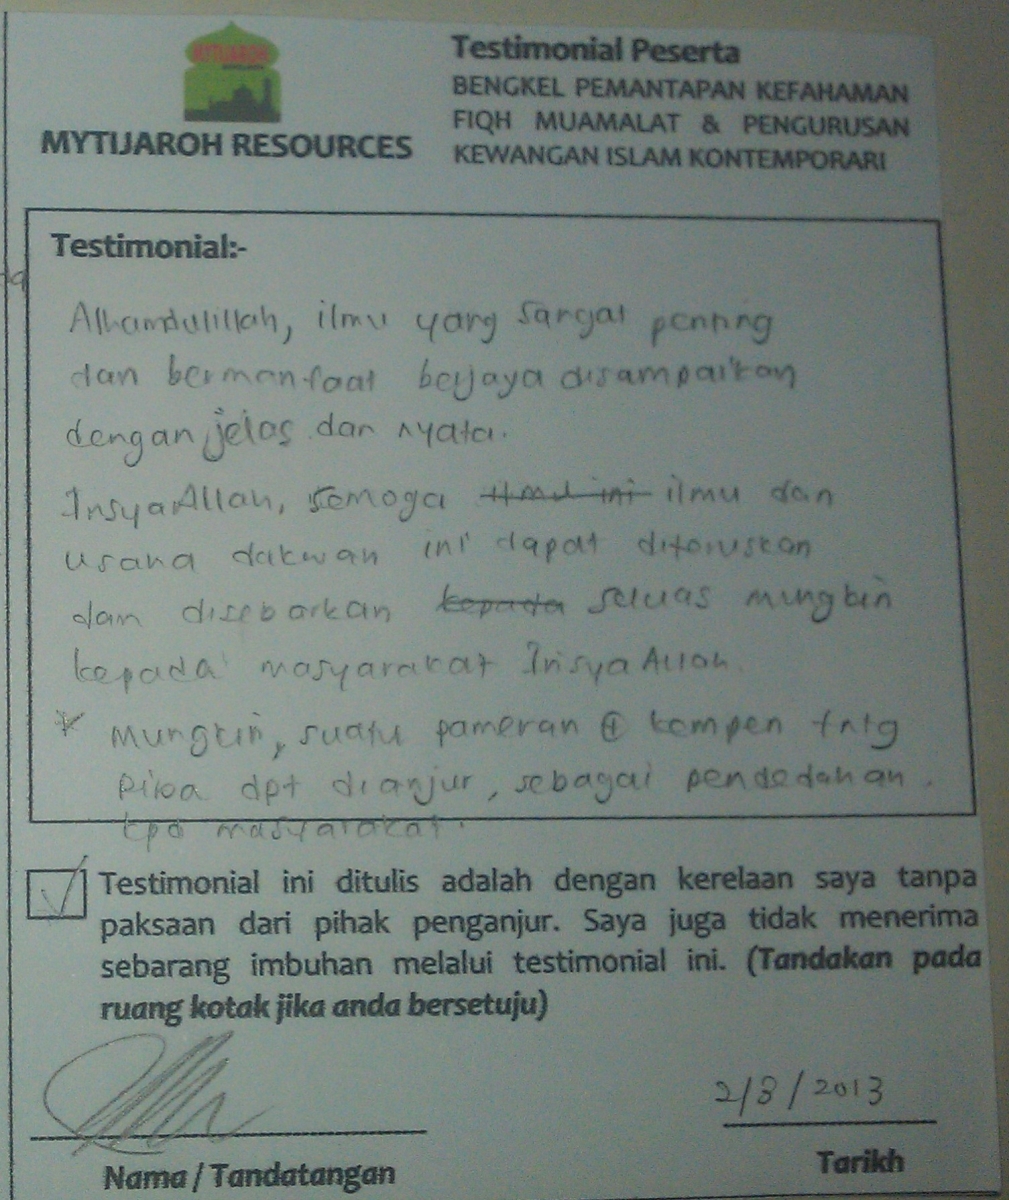 MYTIJAROH
MYTIJAROH RESOURCES
Testimonial Peserta
BENGKEL PEMANTAPAN KEFAHAMAN
FIQH MUAMALAT & PENGURUSAN
KEWANGAN ISLAM KONTEMPORARI
Testimonial:-
Alhamdulillah, ilmu yang sangat penting
dan bermanfaat berjaya disampaikan
dengan jelas dan nyata.
InsyaAllah, semoga ilmu ini ilmu dan
usaha dakwah ini dapat diteruskan
dan disebarkan kepada seluas mungkin
kepada masyarakat InsyaAllah.
* Mungkin, suatu pameran @ kempen tntg
Riba dpt dianjur, sebagai pendedahan
kpd masyarakat.
Testimonial ini ditulis adalah dengan kerelaan saya tanpa
paksaan dari pihak penganjur. Saya juga tidak menerima
sebarang imbuhan melalui testimonial ini. (Tandakan pada
ruang kotak jika anda bersetuju)
2/8/2013
Nama / Tandatangan
Tarikh